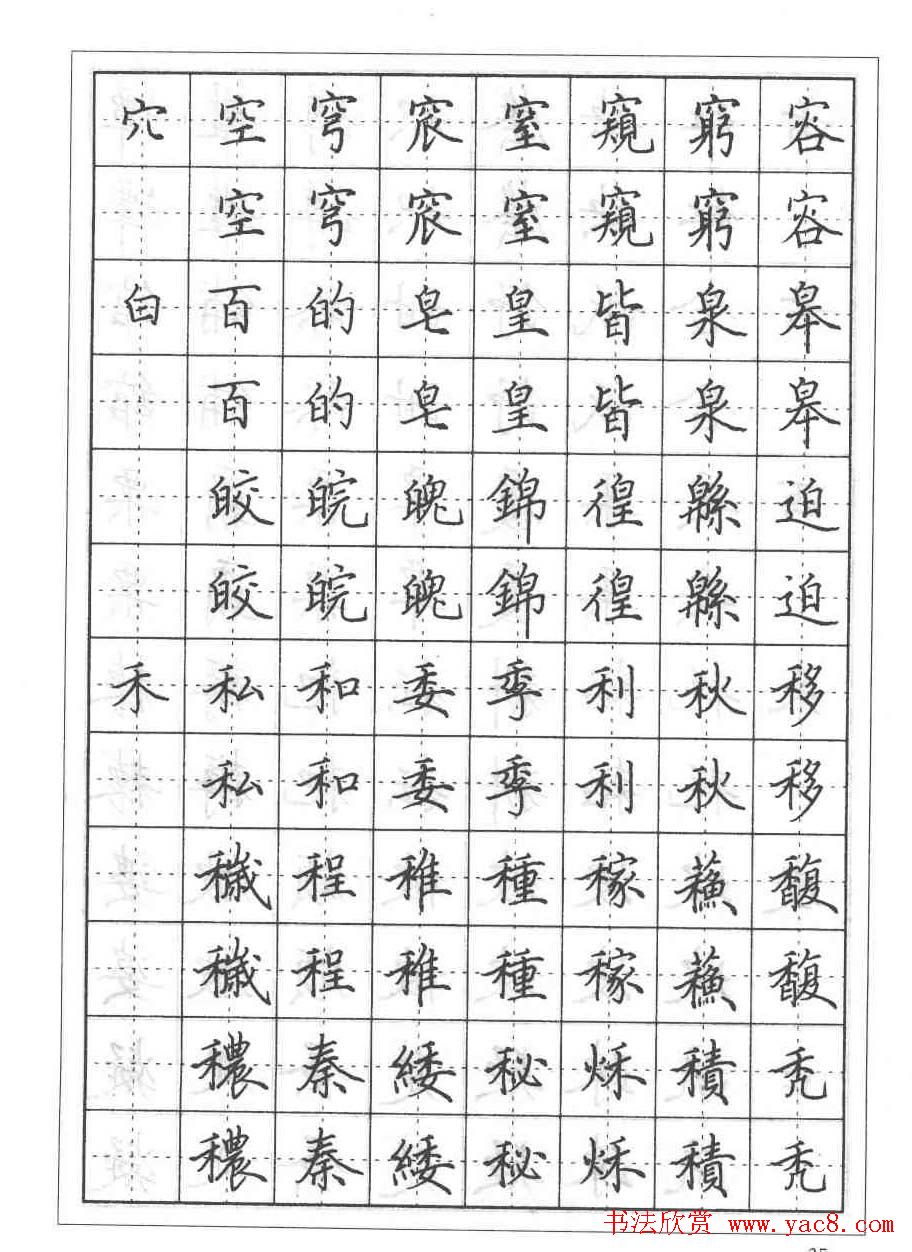 穴 空 穹 窒 窺 窮 容
空 穹 窒 窺 窮 容
白 百 的 皂 皇 皆 泉 皋
百 的 皂 皇 皆 泉 皋
皎 皖 魄 錦 徨 緜 迫
皎 皖 魄 錦 徨 緜 迫
禾 私 和 委 季 利 秋 移
私 和 委 季 利 秋 移
穢 程 稚 種 稼 蘓 馥
穢 程 稚 種 稼 蘓 馥
穠 秦 緌 秘 秌 積 秃
穠 秦 緌 秘 秌 積 秃
书法欣赏 www.yac8.com